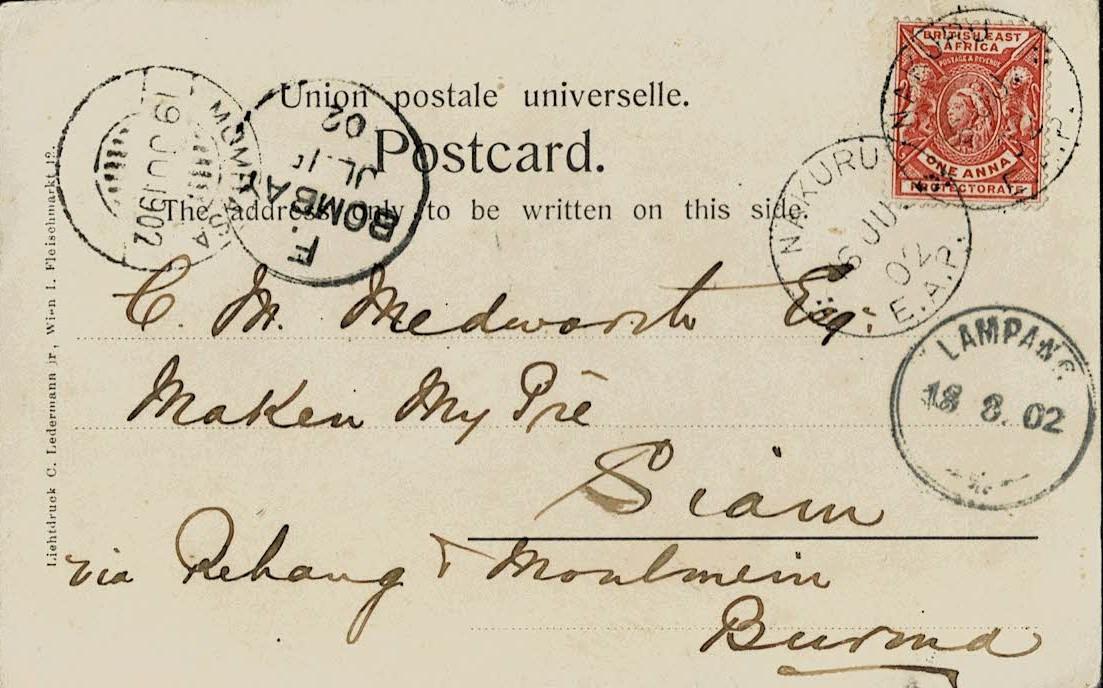 BRITISH EAST
AFRICA
POSTAGE & REVENUE
ONE ANNA
PROTECTORATE
Union postale universelle.
Postcard.
The address only to be written on this side.
MOMBASA
19 JU 1902
F. BOMBAY
JL 1
02
NAKURU
NAKURU
JU
02
E.A.P.
C. M. Medworth Esq:
Maken My Pré
Siam
via Rehang & Moulmein
Burma
LAMPANG
18 8. 02
Lichtdruck C. Ledermann jr, Wien I. Fleischmarkt 12.